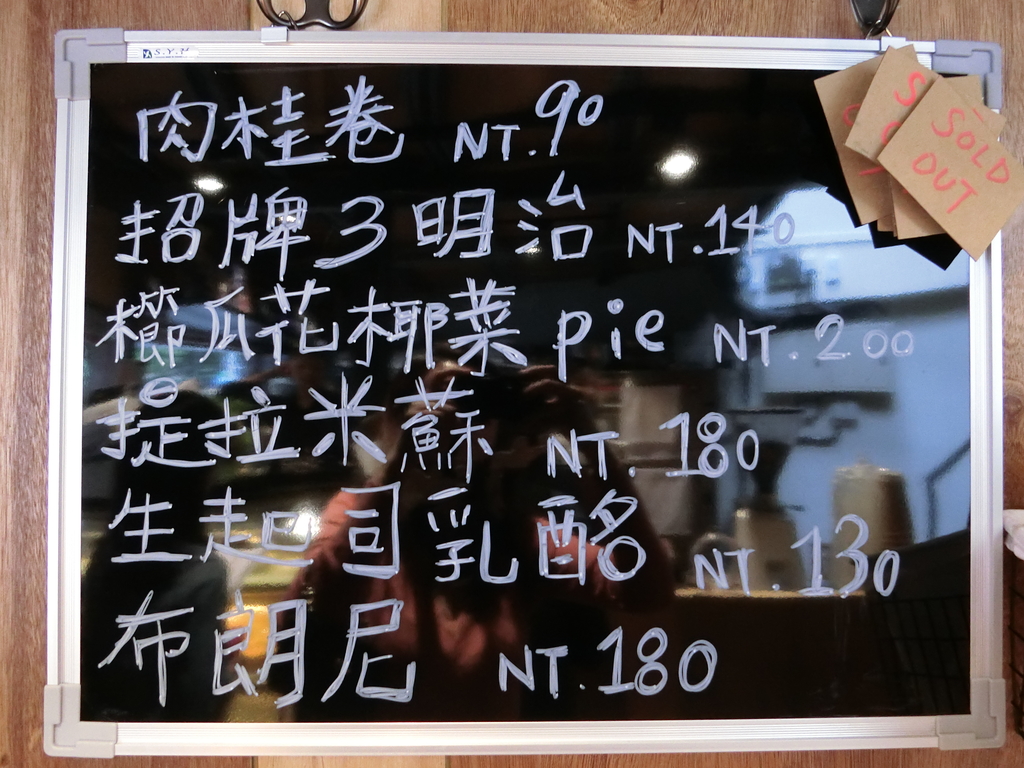 S.Y.H
肉桂卷 NT.90
招牌3明治 NT.140
櫛瓜花椰菜pie NT.200
提拉米蘇 NT.180
生起司乳酪 NT.130
布朗尼 NT.180
SOLD
OUT